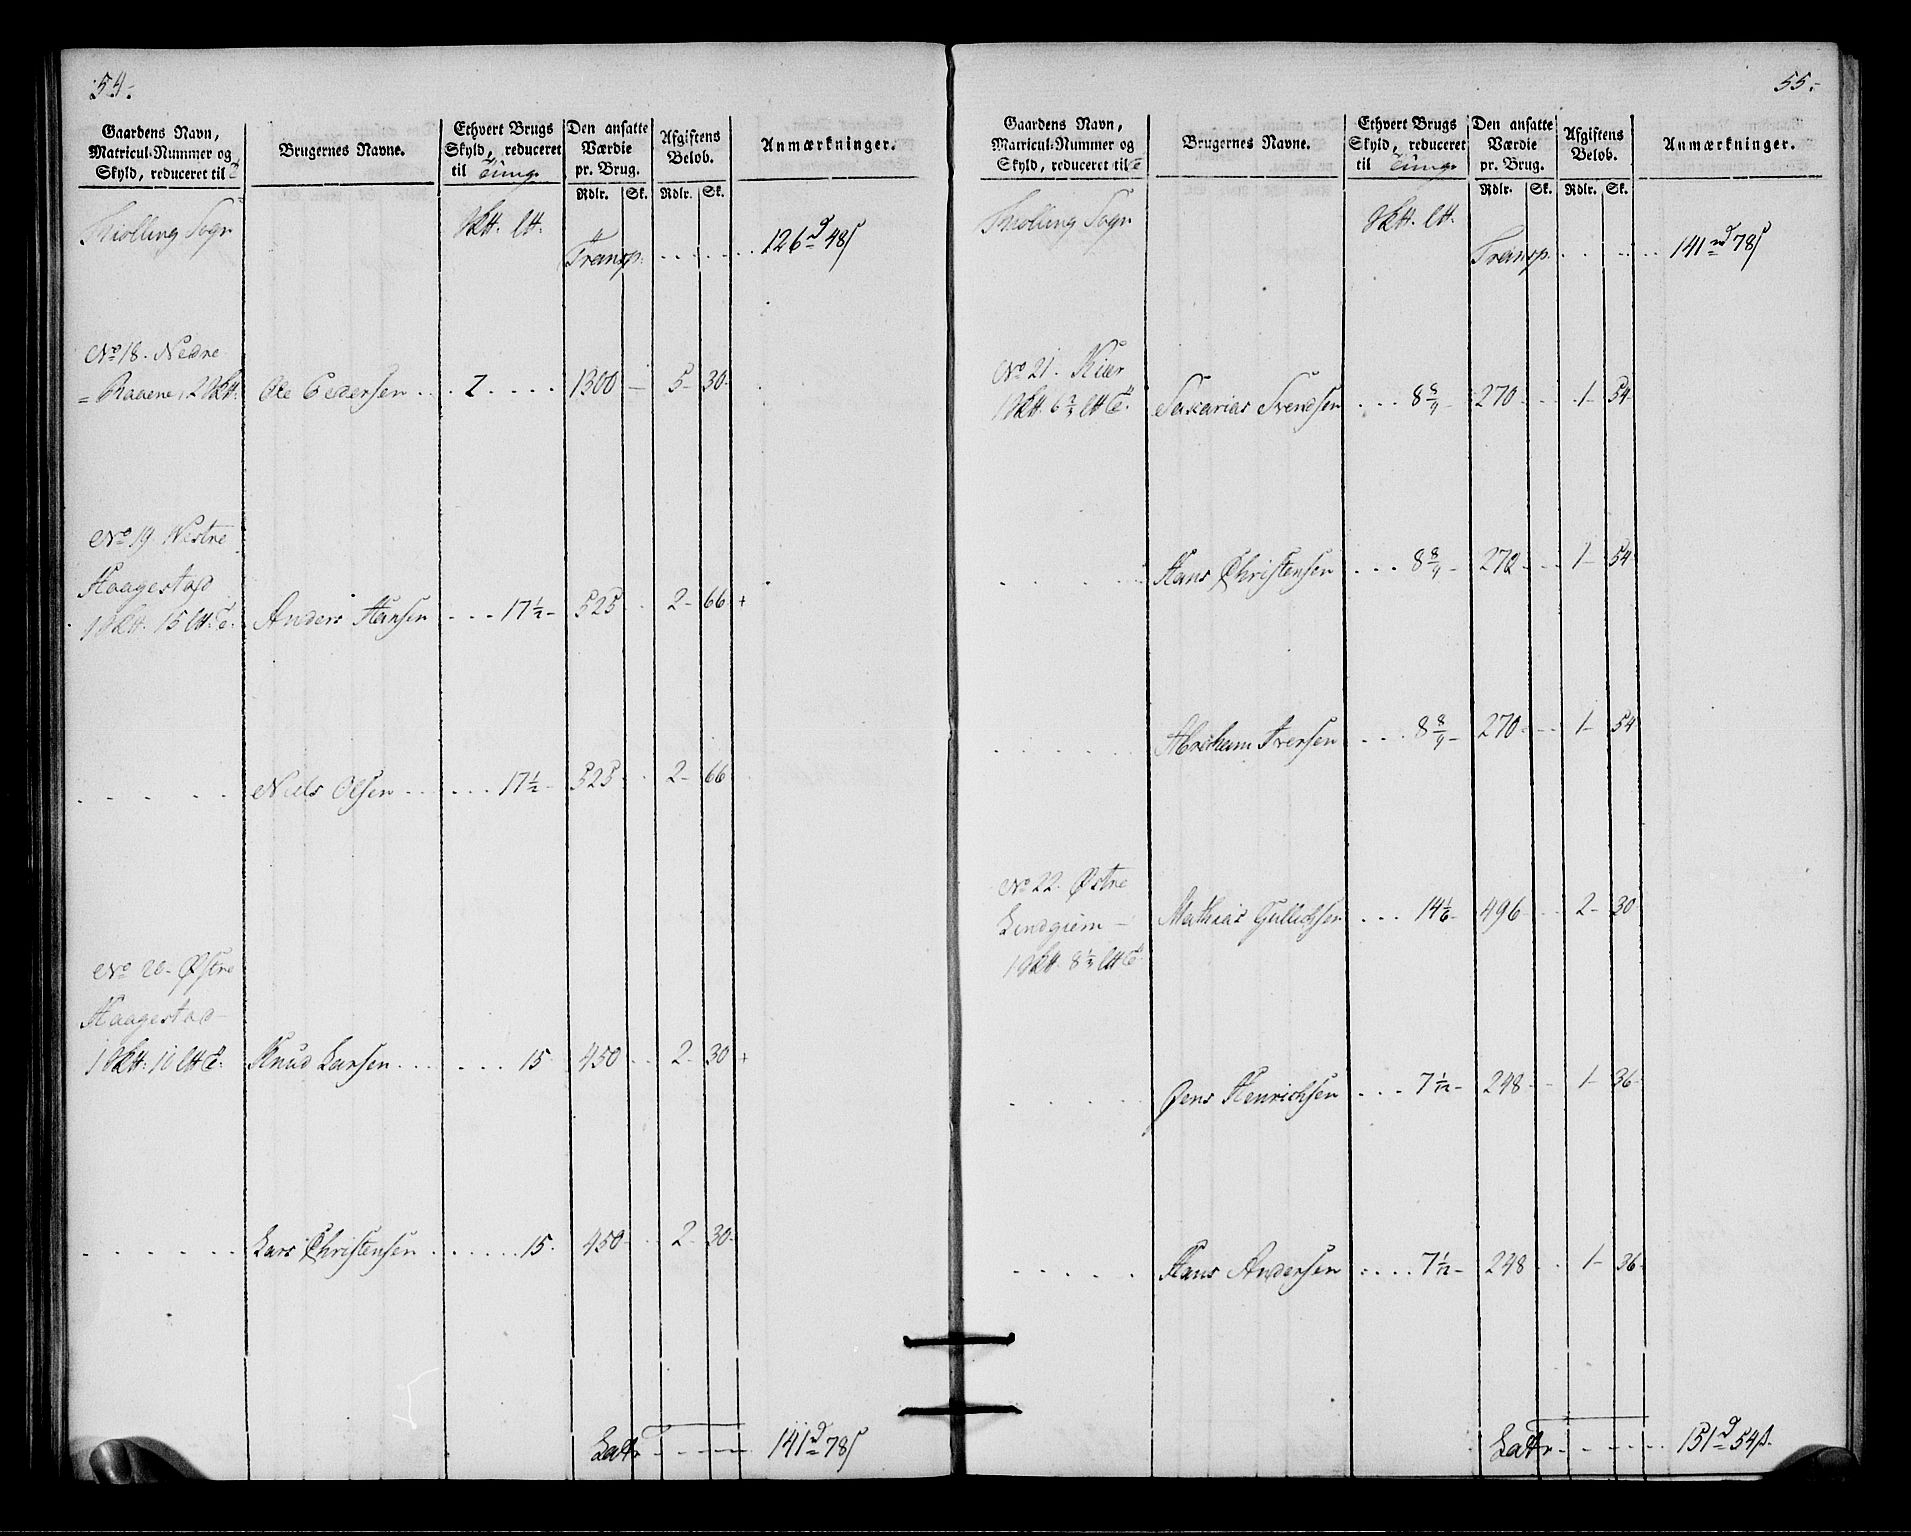 54.
Gaardens Navn, Matricul-Nummer og Skyld, reduceret til T. | Brugernes Navne. | Ethvert Brugs Skyld, reduceret til Tunge | Den ansatte Værdie pr. Brug. | Afgiftens Belob. | Anmærkninger.
Rdlr. | Sk. | Rdlr. | Sk.
Kiølling Sogn | Sk℔. ℔. | Transp. . . . . . . 126 rd 48 s
No 18. Nedre
Raaene, 2 Sk℔. | Ole Pedersen . . | 2 . . . . | 1300 | 5 | 30
No 19. Westre
Haagestad
1 Sk℔. 15 ℔ T. | Anders Hansen | . . . 17 1/2 | 525 | 2 | 66 +
. . . . . | Niels Olsen . . . | . . . 17 1/2 | 525 | 2 | 66
No 20. Østre
Haagestad
1 Sk℔. 10 ℔ T. | Knud Larsen . . . | . . . 15 | 450 | 2 | 30 +
. . . . . | Lars Christensen . | . . . . . 15. | 450 | 2 | 30
Latr . . . . 141 rd 78 s
55.
Gaardens Navn, Matricul-Nummer og Skyld, reduceret til T | Brugernes Navne. | Ethvert Brugs Skyld, reduceret til Tunge | Den ansatte Værdie pr. Brug. | Afgiftens Belob. | Anmærkninger.
Rdlr. | Sk. | Rdlr. | Sk.
Kiølling Sogn | Sk℔. ℔. | Transp. . . . . . 141 rd 78 s
No 21. Kiær
1 Sk℔. 6 2/3 ℔ T. | Sakarias Svendsen | . . . 8 8/9 | 270 | 1 | 54
. . . . . | Hans Christensen | . . . 8 8/9 | 270 | 1 | 54
. . . . . | Abraham Iversen | . . . 8 8/9 | 270 | 1 | 54
No 22. Østre
Lindgiem
1 Sk℔. 8 1/3 ℔ T. | Mathias Gullichsen | . . . 14 1/6 | 496 | 2 | 30
. . . . . | Jens Henrichsen | . . . 7 1/12 | 248 | 1 | 36
. . . . . | Hans Andersen | . . . . 7 1/12 | 248 | 1 | 36
Latr . . . . . . 151 rd 54 s.